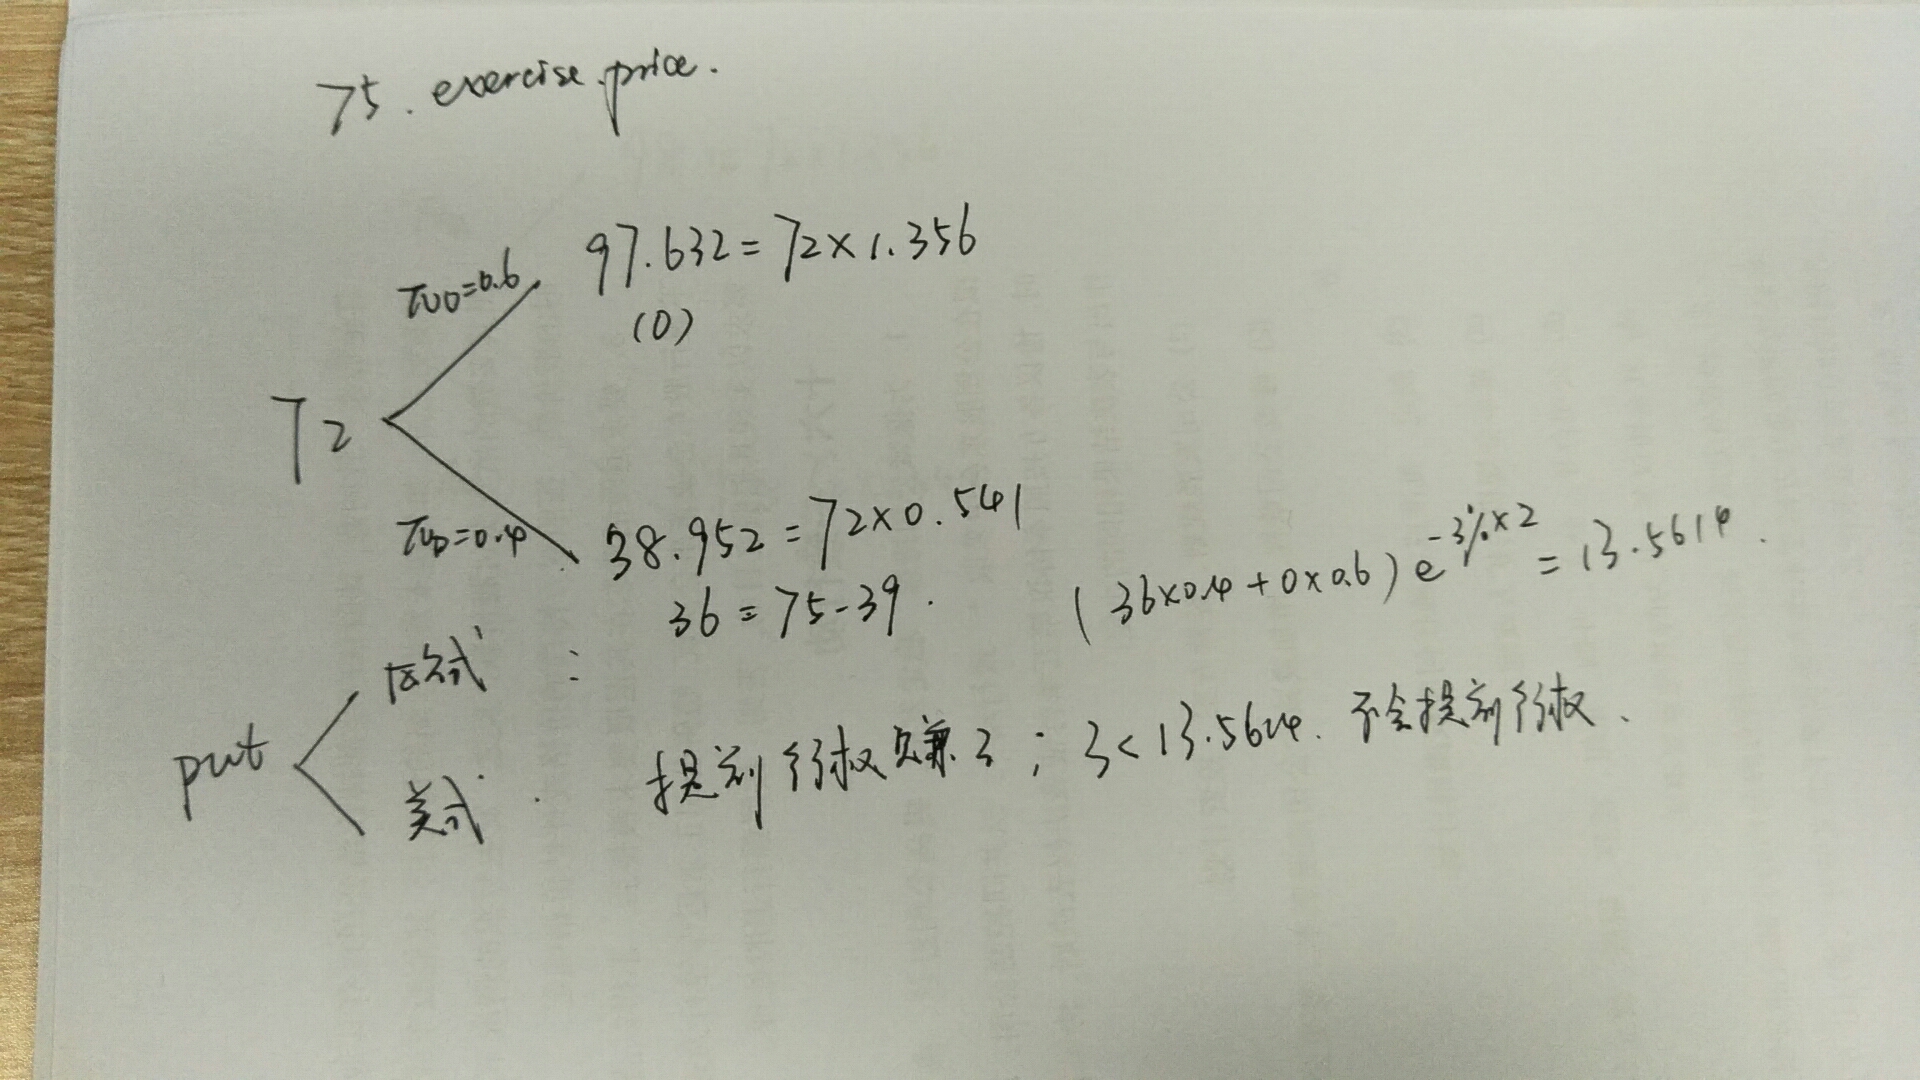 75. exercise price.
πUD=0.6 97.632=72×1.356
(0)
72
πUD=0.4 38.952=72×0.541
36=75-39. (36×0.4+0×0.6)e^-3%×2=13.5614.
put 欧式:
美式. 提前行权只赚3; 3<13.5614. 不会提前行权.